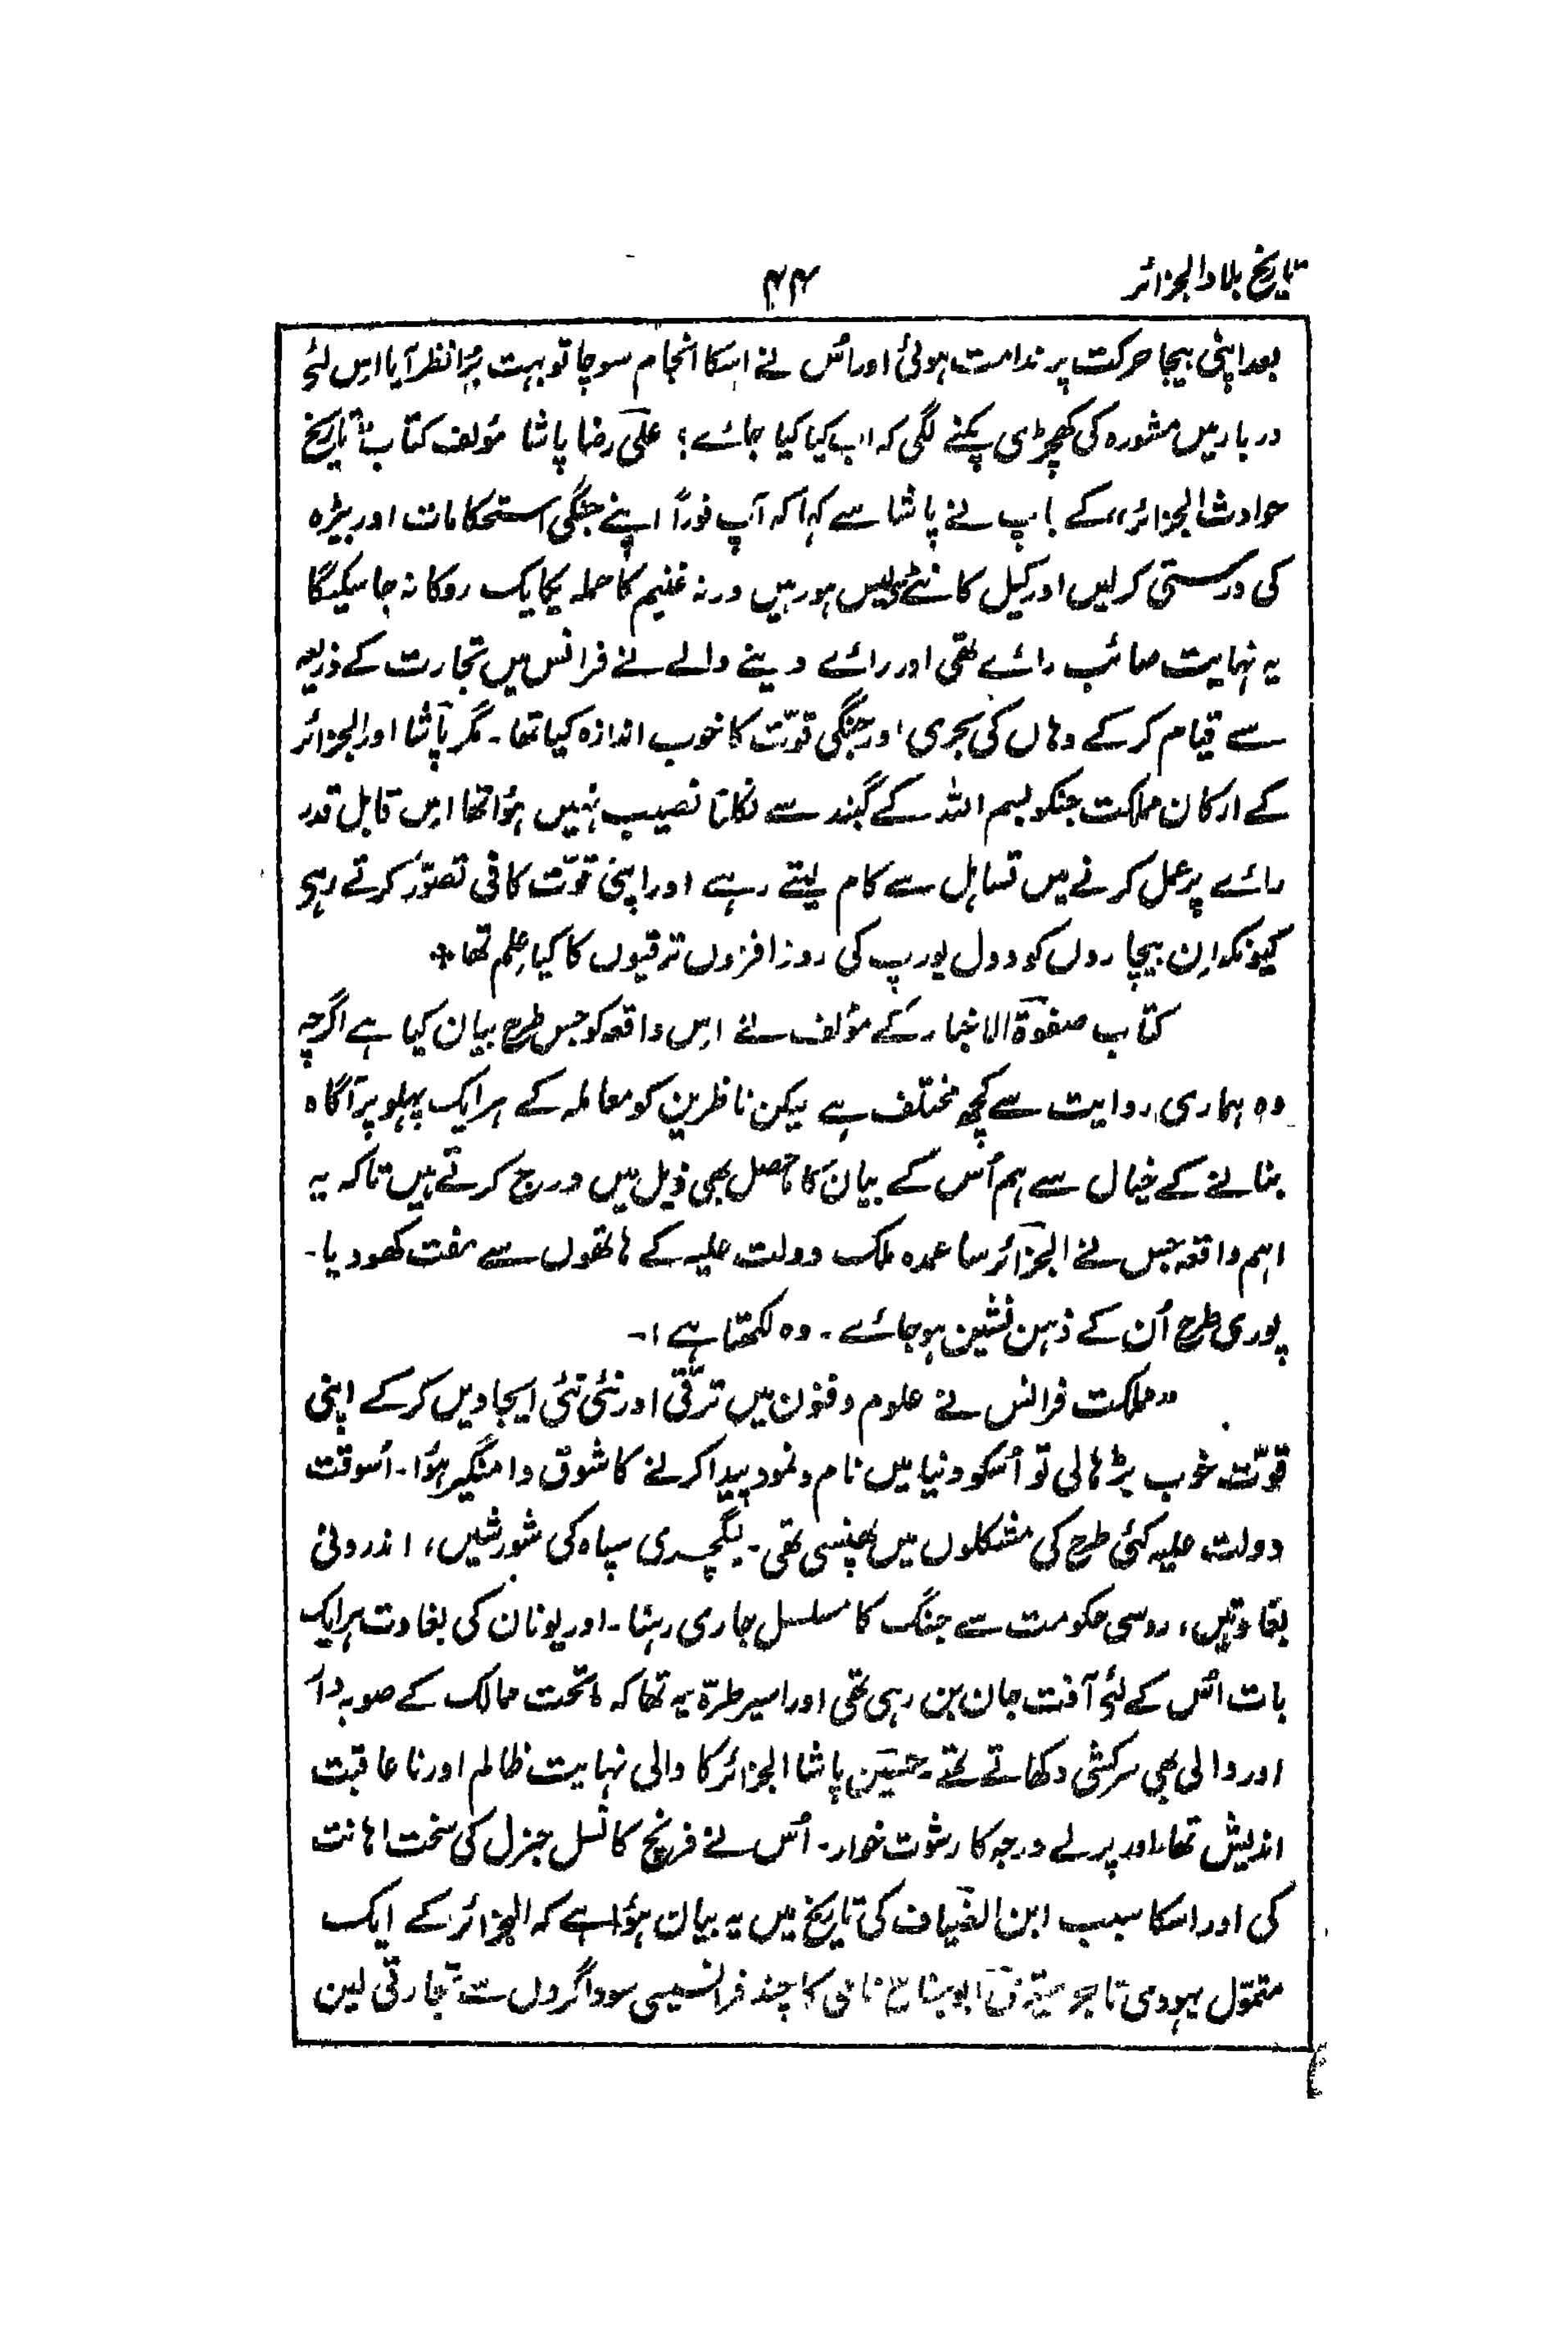 تاریخ بلاد الجزائر
۴۴
بعد اپنی بیجا حرکت پر ندامت ہوئی اور اُس نے اسکا انجام سوچا تو بہت بُرا نظر آیا اس لئے
دربار میں مشورہ کی کھچڑی پکنے لگی کہ اب کیا کیا جائے؟ علی رضا پاشا مؤلف کتاب "تاریخ
حوادث الجزائر" کے باپ نے پاشا سے کہا کہ آپ فوراً اپنے جنگی استحکامات اور بیڑہ
کی درستی کر لیں اور کیل کانٹے لیس ہو رہیں ورنہ غنیم کا حملہ یکایک روکا نہ جا سکیگا
یہ نہایت صائب رائے تھی اور رائے دینے والے نے فرانس میں تجارت کے ذریعہ
سے قیام کر کے وہاں کی بحری اور جنگی قوّت کا خوب اندازہ کیا تھا۔ مگر پاشا اور الجزائر
کے ارکان مملکت جنکو بسم اللہ کے گنبد سے نکلنا نصیب نہیں ہُوا تھا اس قابل قدر
رائے پر عمل کرنے میں تساہل سے کام لیتے رہے اور اپنی قوّت کافی تصوّر کرتے رہے
کیونکہ اِن بیچاروں کو دول یورپ کی روز افزوں ترقیوں کا کیا عِلم تھا ٭
کتاب صفوۃ الاخبار کے مؤلف نے اس واقعہ کو جس طرح بیان کیا ہے اگرچہ
وہ ہماری روایت سے کچھ مختلف ہے لیکن ناظرین کو معاملہ کے ہر ایک پہلو پر آگاہ
بنانے کے خیال سے ہم اُس کے بیان کا ماحصل بھی ذیل میں درج کرتے ہیں تاکہ یہ
اہم واقعہ جس نے الجزائر سا عمدہ ملک دولت علیہ کے ہاتھوں سے مفت کھو دیا۔
پوری طرح اُن کے ذہن نشین ہو جائے۔ وہ لکھتا ہے:-
"مملکت فرانس نے علوم و فنون میں ترقّی اور نئی نئی ایجادیں کر کے اپنی
قوّت خوب بڑھالی تو اُسکو دنیا میں نام و نمود پیدا کرنے کا شوق دامنگیر ہُوا۔ اُسوقت
دولت علیہ کئی طرح کی مشکلوں میں پھنسی تھی۔ ینگچری سپاہ کی شورشیں، اندرونی
بغاوتیں، روسی حکومت سے جنگ کا مسلسل جاری رہنا۔ اور یونان کی بغاوت ہر ایک
بات اُس کے لئے آفت جان بن رہی تھی اور اسپر طرّہ یہ تھا کہ ماتحت ممالک کے صوبہ دار
اور والی بھی سرکشی دکھاتے تھے۔ حسین پاشا الجزائر کا والی نہایت ظالم اور ناعاقبت
اندیش تھا اور پرلے درجہ کا رشوت خوار۔ اُس نے فرنچ کانسل جنرل کی سخت اہانت
کی اور اسکا سبب ابن الضیاف کی تاریخ میں یہ بیان ہُوا ہے کہ الجزائر کے ایک
متموّل یہودی تاجر ابو شناخ نامی کا چند فرانسیسی سوداگروں سے تجارتی لین